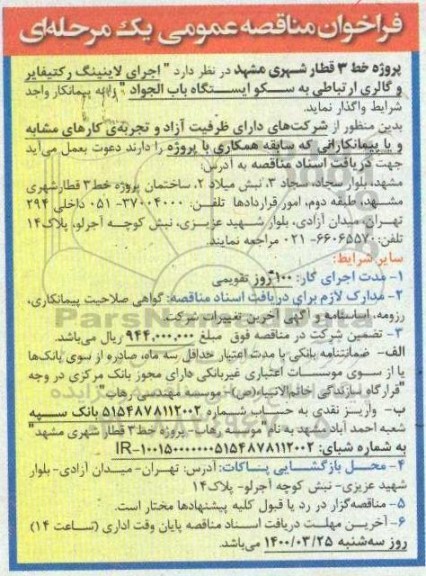 فراخوان مناقصه عمومی یک مرحله‌ای
پروژه خط ۳ قطار شهری مشهد در نظر دارد " اجرای لاینینگ رکتیفایر
و گالری ارتباطی به سکو ایستگاه باب الجواد " را به پیمانکار واجد
شرایط واگذار نماید.
بدین منظور از شرکت‌های دارای ظرفیت آزاد و تجربه‌ی کارهای مشابه
و یا پیمانکارانی که سابقه همکاری با پروژه را دارند دعوت بعمل می‌آید
جهت دریافت اسناد مناقصه به آدرس:
مشهد، بلوار سجاد، سجاد ۳، نبش میلاد ۲، ساختمان پروژه خط ۳ قطارشهری
مشهد، طبقه دوم، امور قراردادها تلفن: ۳۷۰۰۴۰۰۰-۰۵۱ داخلی ۲۹۴
تهران- میدان آزادی، بلوار شهید عزیزی، نبش کوچه آجرلو، پلاک۱۴
تلفن: ۶۶۰۶۵۵۷۰-۰۲۱ مراجعه نمایند.
سایر شرایط:
۱- مدت اجرای کار: ۱۰۰ روز تقویمی
۲- مدارک لازم برای دریافت اسناد مناقصه: گواهی صلاحیت پیمانکاری،
رزومه، اساسنامه و آگهی آخرین تغییرات شرکت
۳- تضمین شرکت در مناقصه فوق مبلغ ۹۴۴,۰۰۰,۰۰۰ ریال می‌باشد.
الف- ضمانتنامه بانکی با مدت اعتبار حداقل سه ماه، صادره از سوی بانک‌ها
یا از سوی موسسات اعتباری غیربانکی دارای مجوز بانک مرکزی در وجه
"قرارگاه سازندگی خاتم‌الانبیاء(ص)- موسسه مهندسی رهاب"
ب- واریز نقدی به حساب شماره ۵۱۵۴۸۷۸۱۱۲۰۰۲ بانک سپه
شعبه احمد آباد مشهد به نام "موسسه رهاب- پروژه خط۳ قطار شهری مشهد"
به شماره شبای: IR-۱۰۰۱۵۰۰۰۰۰۰۵۱۵۴۸۷۸۱۱۲۰۰۲
۴- محل بازگشایی پاکات: آدرس: تهران- میدان آزادی- بلوار
شهید عزیزی- نبش کوچه آجرلو- پلاک۱۴
۵- مناقصه‌گزار در رد یا قبول کلیه پیشنهادها مختار است.
۶- آخرین مهلت دریافت اسناد مناقصه پایان وقت اداری (ساعت ۱۴)
روز سه‌شنبه ۱۴۰۰/۰۳/۲۵ می‌باشد.